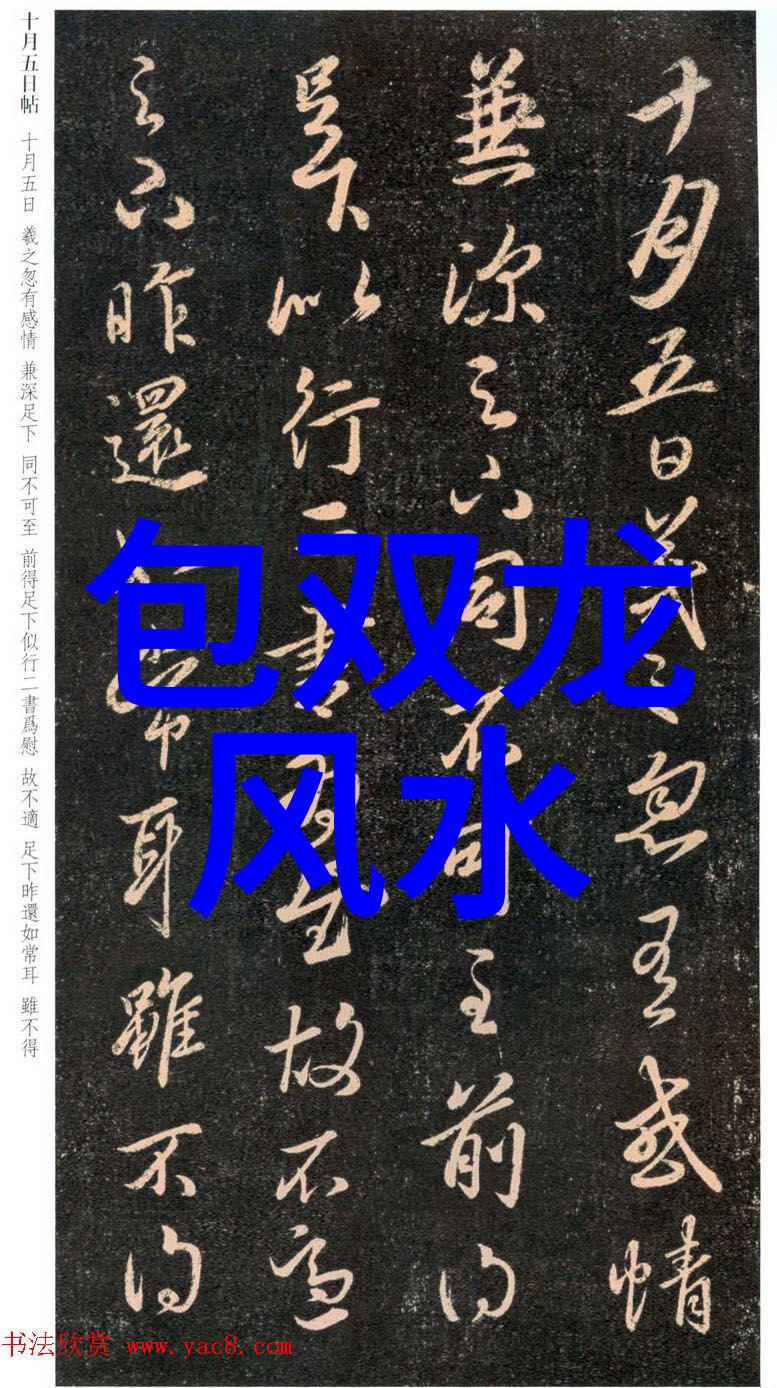 十月五日羲之忽有感情
兼深足下同不可至前得
足下以行二書為慰故不適
足下昨還如常耳雖不得
十月五日帖 十月五日 羲之忽有感情 兼深足下 同不可至 前得足下似行二書爲慰 故不適 足下昨還如常耳 雖不得
包双龙
风水
书法欣赏 www.yac8.com